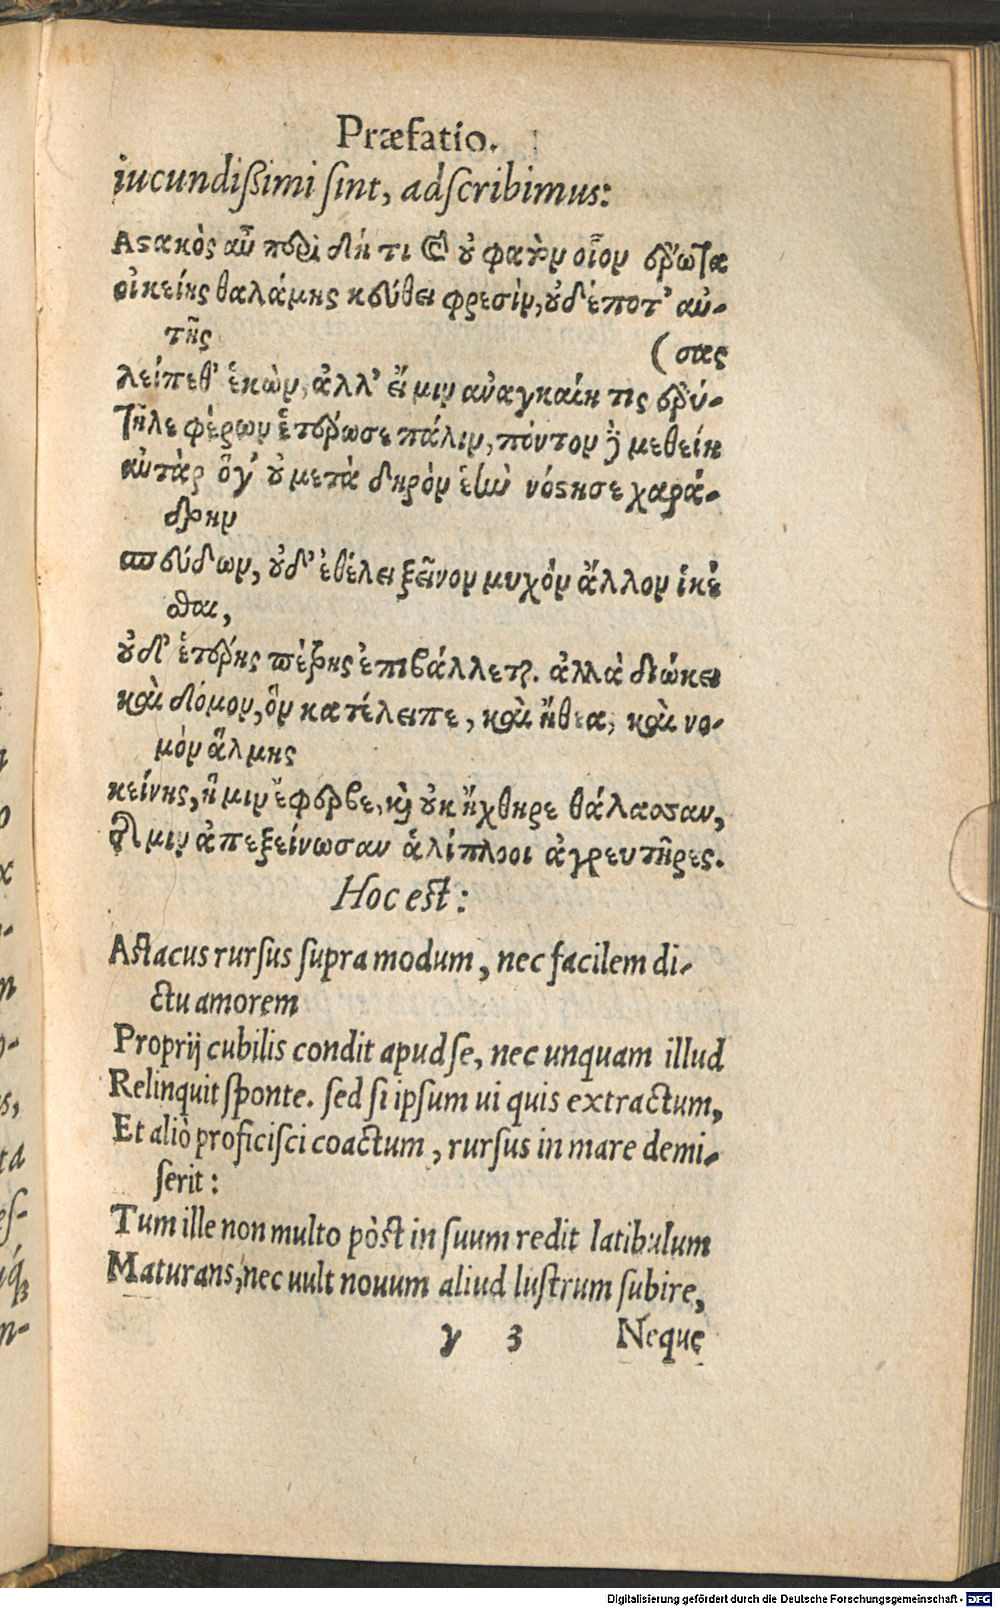 Præfatio.
iucundißimi sint, adscribimus:
Ἀστακὸς αὖ περὶ δή τι καὶ οὐ φατὸν οἷον ἔρωτα
οἰκείης θαλάμης κεύθει φρεσὶν, οὐδέποτ' αὐ-
τῆς
(σας
λείπεθ' ἑκὼν, ἀλλ' εἴ μιν ἀναγκαίη τις ἐρύ-
τῆλε φέρων ἑτέρωσε πάλιν, πόντον δὲ μεθείη
αὐτὰρ ὅγ' οὐ μετὰ δηρὸν ἑὴν νόστησε χαρά-
δρην
σπεύδων, οὐδ' ἐθέλει ξεῖνον μυχὸν ἄλλον ἱκέ
σθαι,
οὐδ' ἑτέρης πέτρης ἐπιβάλλεται. ἀλλὰ διώκει
καὶ δόμον, ὃν κατέλειπε, καὶ ἤθεα, καὶ νο-
μὸν ἅλμης
κείνης, ἥ μιν ἔφερβε, καὶ οὐκ ἤχθηρε θάλασσαν,
τῆς μιν ἀπεξείνωσαν ἁλίπλοοι ἀγρευτῆρες.
Hoc est:
Astacus rursus supra modum, nec facilem di-
ctu amorem
Proprij cubilis condit apud se, nec unquam illud
Relinquit sponte. sed si ipsum ui quis extractum,
Et aliò proficisci coactum, rursus in mare demi-
serit:
Tum ille non multo pòst in suum redit latibulum
Maturans, nec uult nouum aliud lustrum subire,
γ 3 Neque
Digitalisierung gefördert durch die Deutsche Forschungsgemeinschaft - DFG